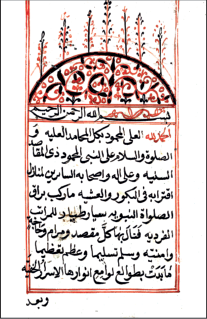 بسم الله الرحمن الرحيم
الحمد لله العلى المحمود بكل المحامد العليه و
الصلوة والسلام على النبى المحمود ذى المقاصد
السنيه وعلى اله واصحابه السارين منازل
اقترابه فى البكور والعشيه ماركب براق
الصلواة النبويه سيار المراتب
الفرديه فنال بها كل مقصد ومرام
ومنته وسلم تسليما وعظم تعظيما
ما بدت بطوالع لوامع انوارها الاسرار الخفيه
وبعد